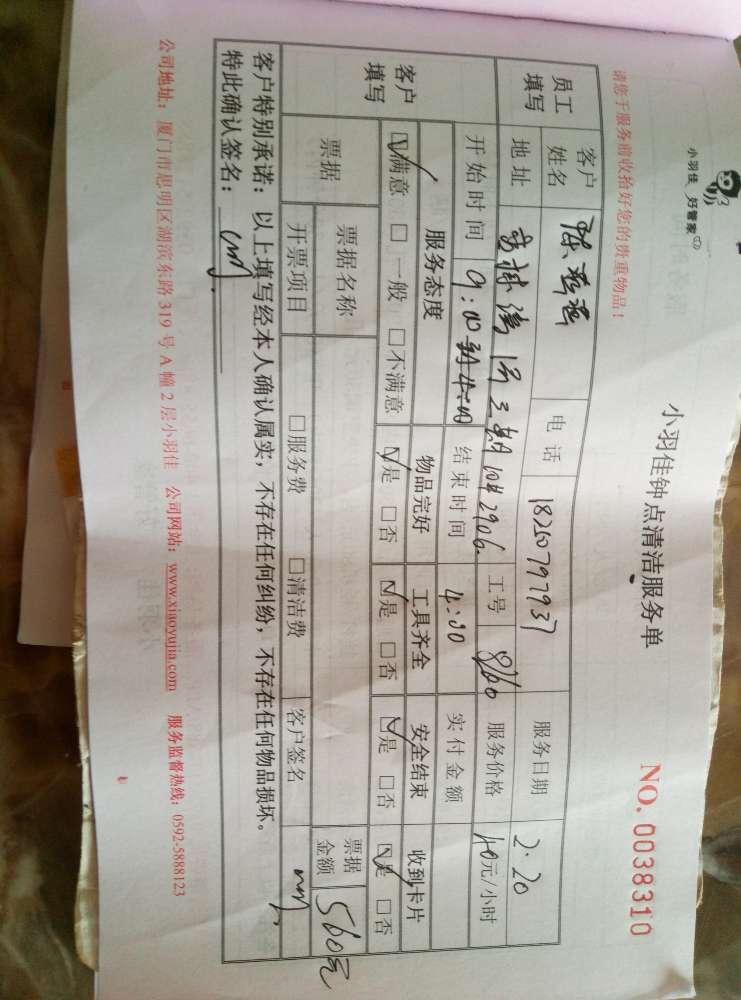 小羽佳 好管家
小羽佳钟点清洁服务单
NO. 0038310
请您于服务前收拾好您的贵重物品！
员工填写
客户姓名 陈 电话 18260797937 服务日期 2.20
地址 三期 2906 工号 8160 服务价格 40元/小时
开始时间 9:00 结束时间 4:00 实付金额
客户填写
服务态度 物品完好 工具齐全 安全结束 收到卡片
☑满意 □一般 □不满意 ☑是 □否 ☑是 □否 ☑是 □否 ☑是 □否
票据 票据名称 票据金额 560元
开票项目 □服务费 □清洁费 客户签名
客户特别承诺：以上填写经本人确认属实，不存在任何纠纷，不存在任何物品损坏。
特此确认签名：
公司地址：厦门市思明区湖滨东路319号A幢2层小羽佳 公司网站：www.xiaoyujia.com 服务监督热线：0592-5888123